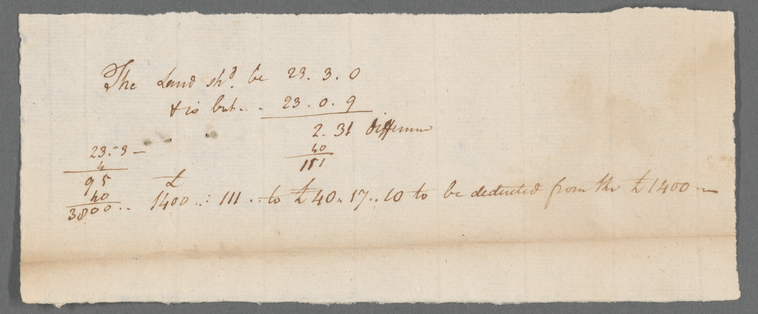 The Land shd. be 23. 3. 0
& is but... 23. 0. 9
2. 31 difference
40
111
23.. 3 —
4
95
40
3800 .. £1400 ..: 111 .. to £40 .. 17 .. 10 to be deducted from the £1400 —